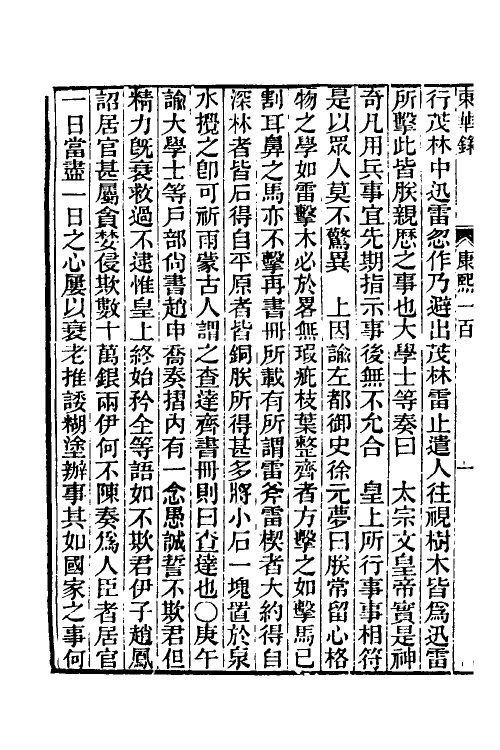 東華錄 康熙一百 一
行茂林中迅雷忽作乃避出茂林雷止遣人往視樹木皆爲迅雷
所擊此皆朕親歷之事也大學士等奏曰 太宗文皇帝實是神
奇凡用兵事宜先期指示事後無不允合 皇上所行事事相符
是以眾人莫不驚異 上因諭左都御史徐元夢曰朕常留心格
物之學如雷擊木必於畧無瑕疵枝葉整齊者方擊之如擊馬已
割耳鼻之馬亦不擊再書冊所載有所謂雷斧雷楔者大約得自
深林者皆石得自平原者皆銅朕所得甚多將小石一塊置於泉
水攪之卽可祈雨蒙古人謂之查達齊書冊則曰查達也○庚午
諭大學士等戶部尙書趙申喬奏摺內有一念愚誠誓不欺君但
精力旣衰救過不逮惟皇上終始矜全等語如不欺君伊子趙鳳
詔居官甚屬貪婪侵欺數十萬銀兩伊何不陳奏爲人臣者居官
一日當盡一日之心屢以衰老推諉糊塗辦事其如國家之事何